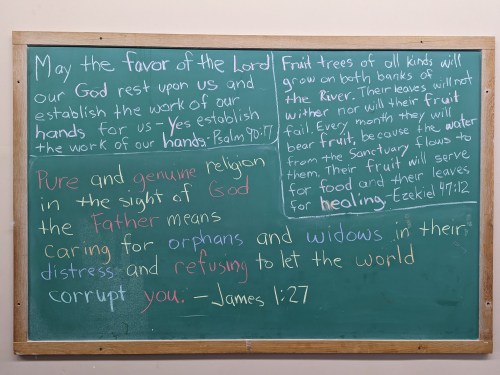 May the favor of the Lord
our God rest upon us and
establish the work of our
hands for us - Yes establish
the work of our hands - Psalm 90:17
Fruit trees of all kinds will
grow on both banks of
the River. Their leaves will not
wither nor will their fruit
fail. Every month they will
bear fruit, because the water
from the Sanctuary flows to
them. Their fruit will serve
for food and their leaves
for healing - Ezekiel 47:12
Pure and genuine religion
in the sight of God
the Father means
caring for orphans and widows in their
distress and refusing to let the world
corrupt you. - James 1:27